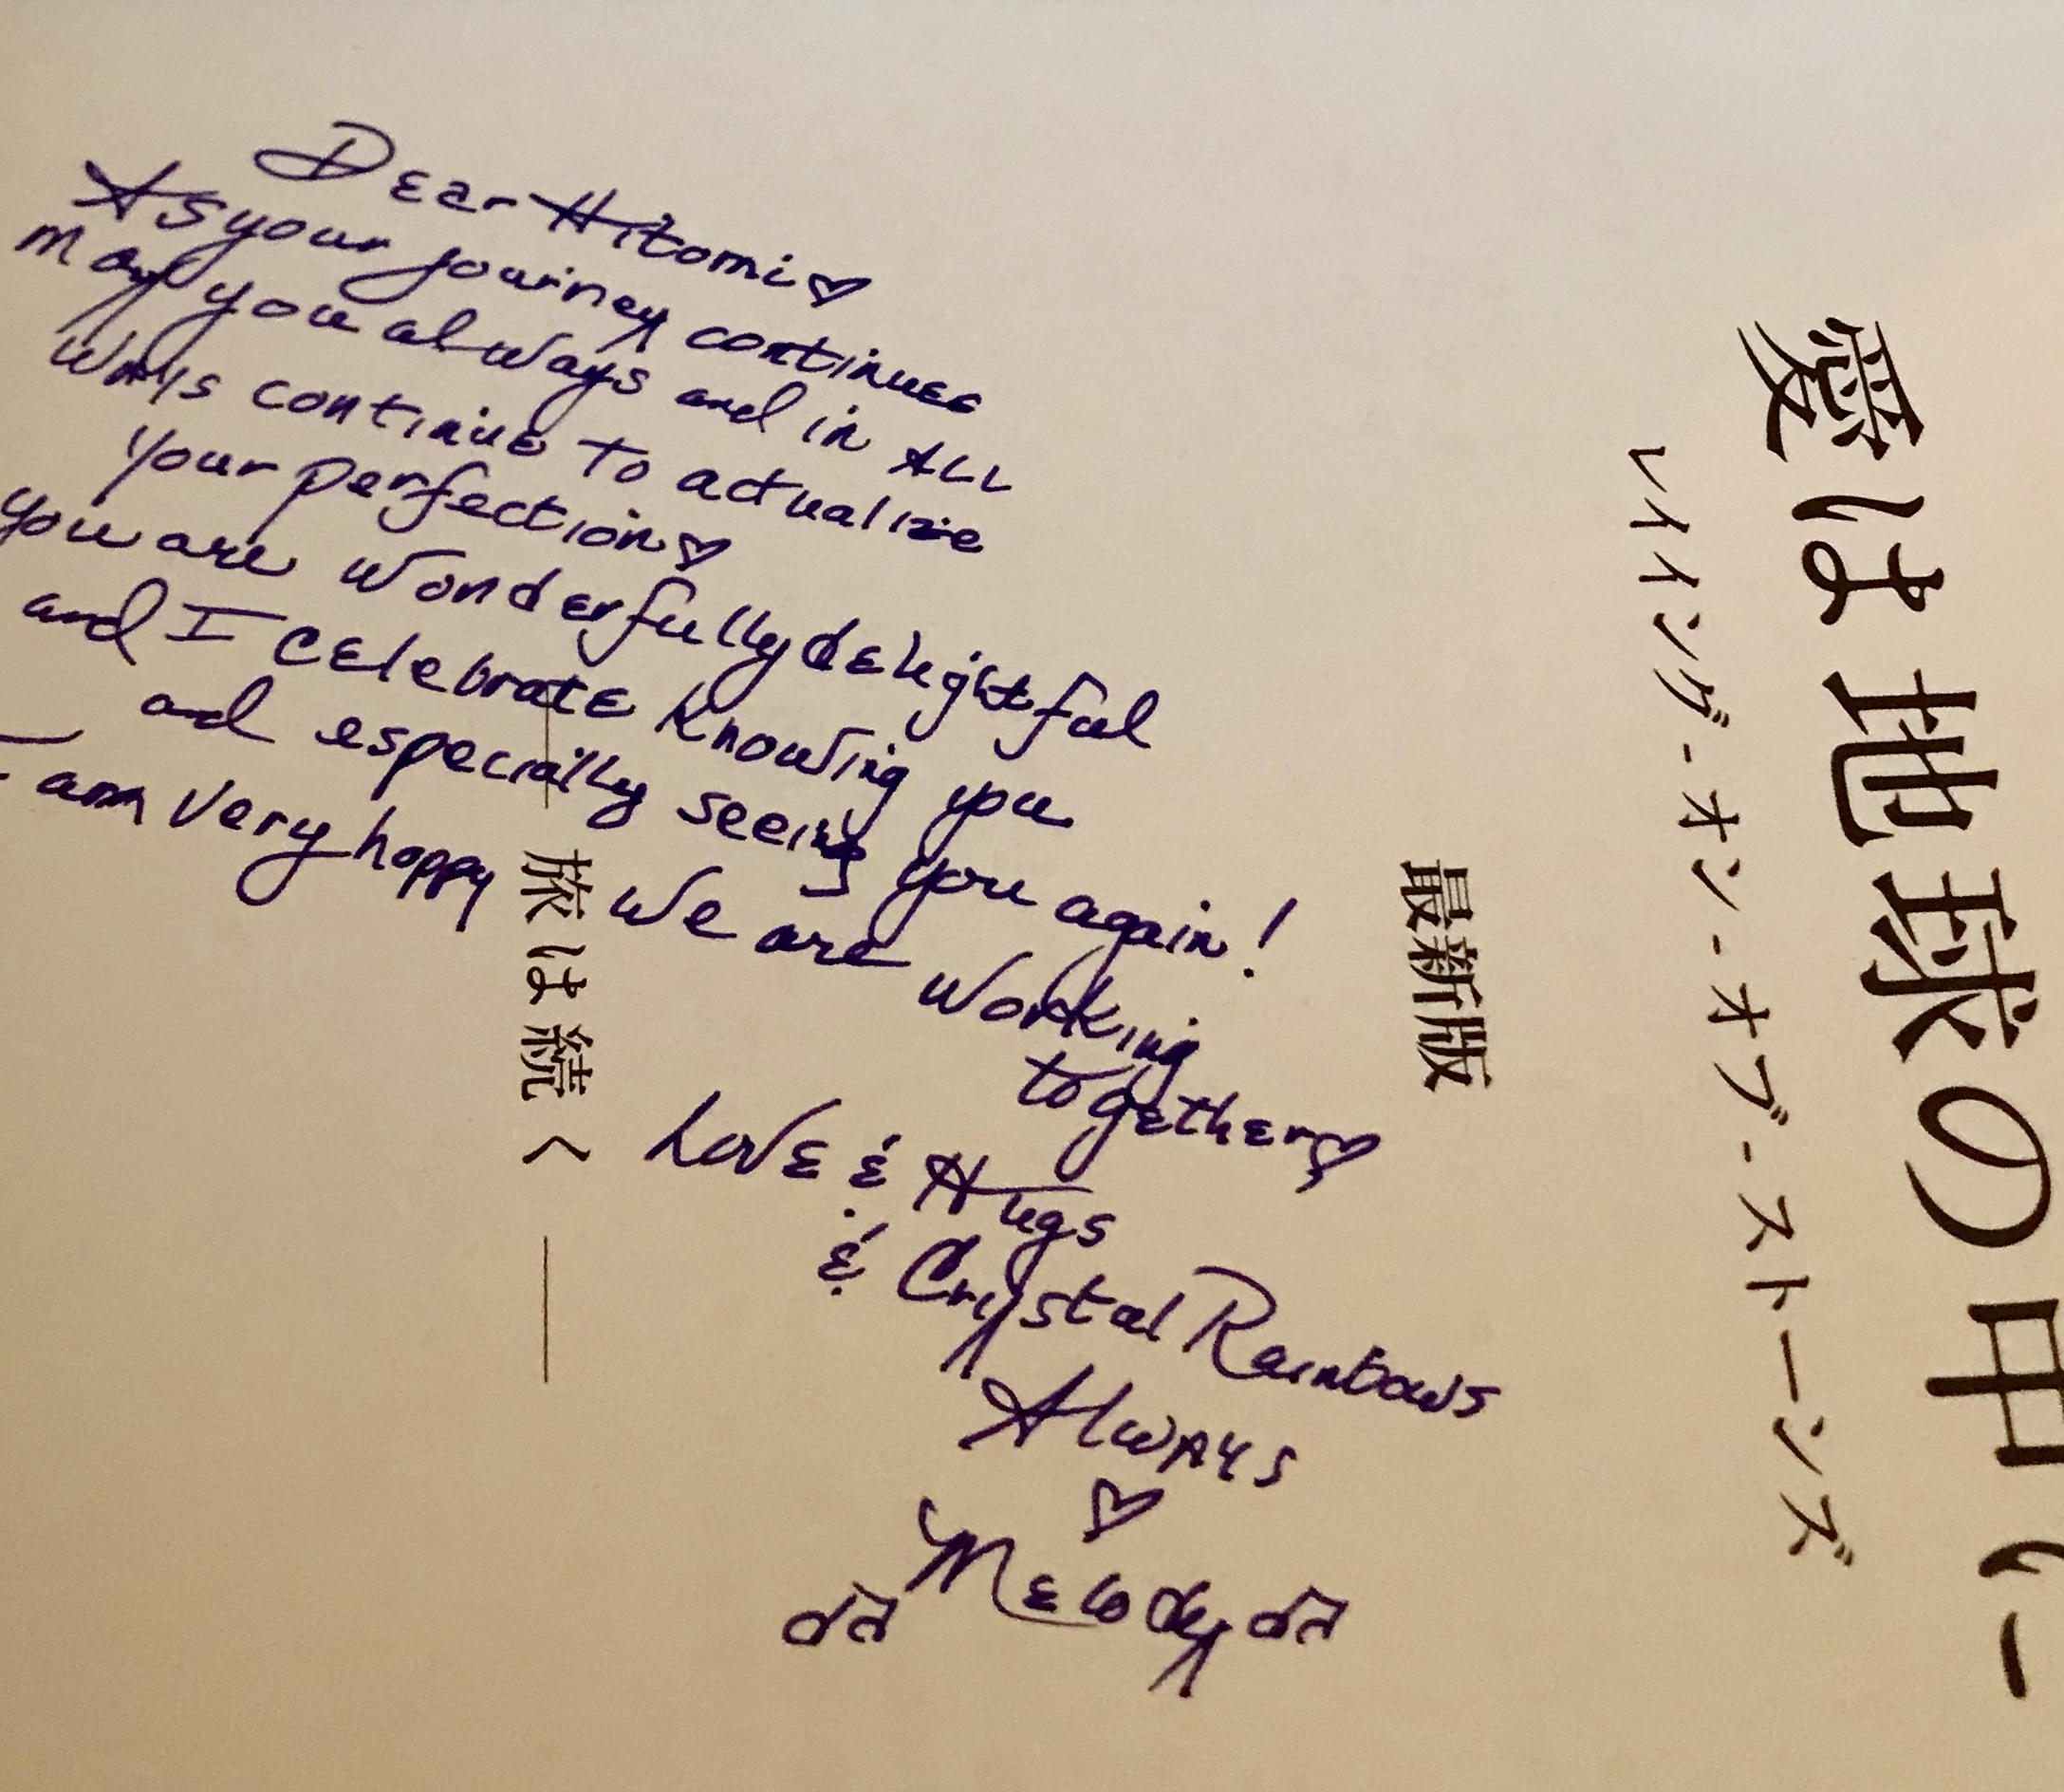 Dear Hitomi♡
As your journey continues
may you always and in ALL
ways continue to actualize
your perfection♡
you are wonderfully delightful
and I celebrate knowing you
and especially seeing you again!
am very happy we are working
together♡
Love & Hugs
& Crystal Rainbows
Always
♡
Melody
愛は地球の中に
レイイング-オン-オブ-ストーンズ
最新版
旅は続く